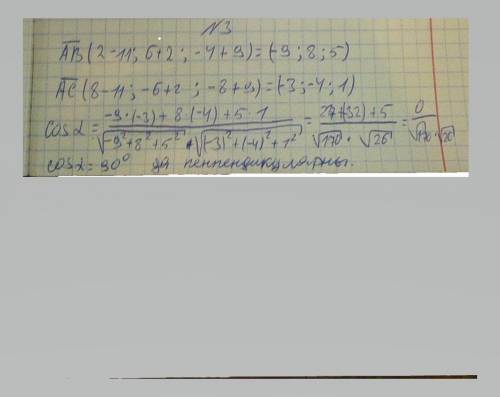 №3
AB (2-11; 6+2; -4+9) = (-9; 8; 5)
AC (8-11; -6+2; -8+9) = (-3; -4; 1)
cos α = (-9·(-3) + 8·(-4) + 5·1) / (√(-9²+8²+5²) · √((-3)²+(-4)²+1²)) = (27+(-32)+5) / (√170 · √26) = 0 / (√170 · √26)
cos α = 90° да пенпендикулярны.